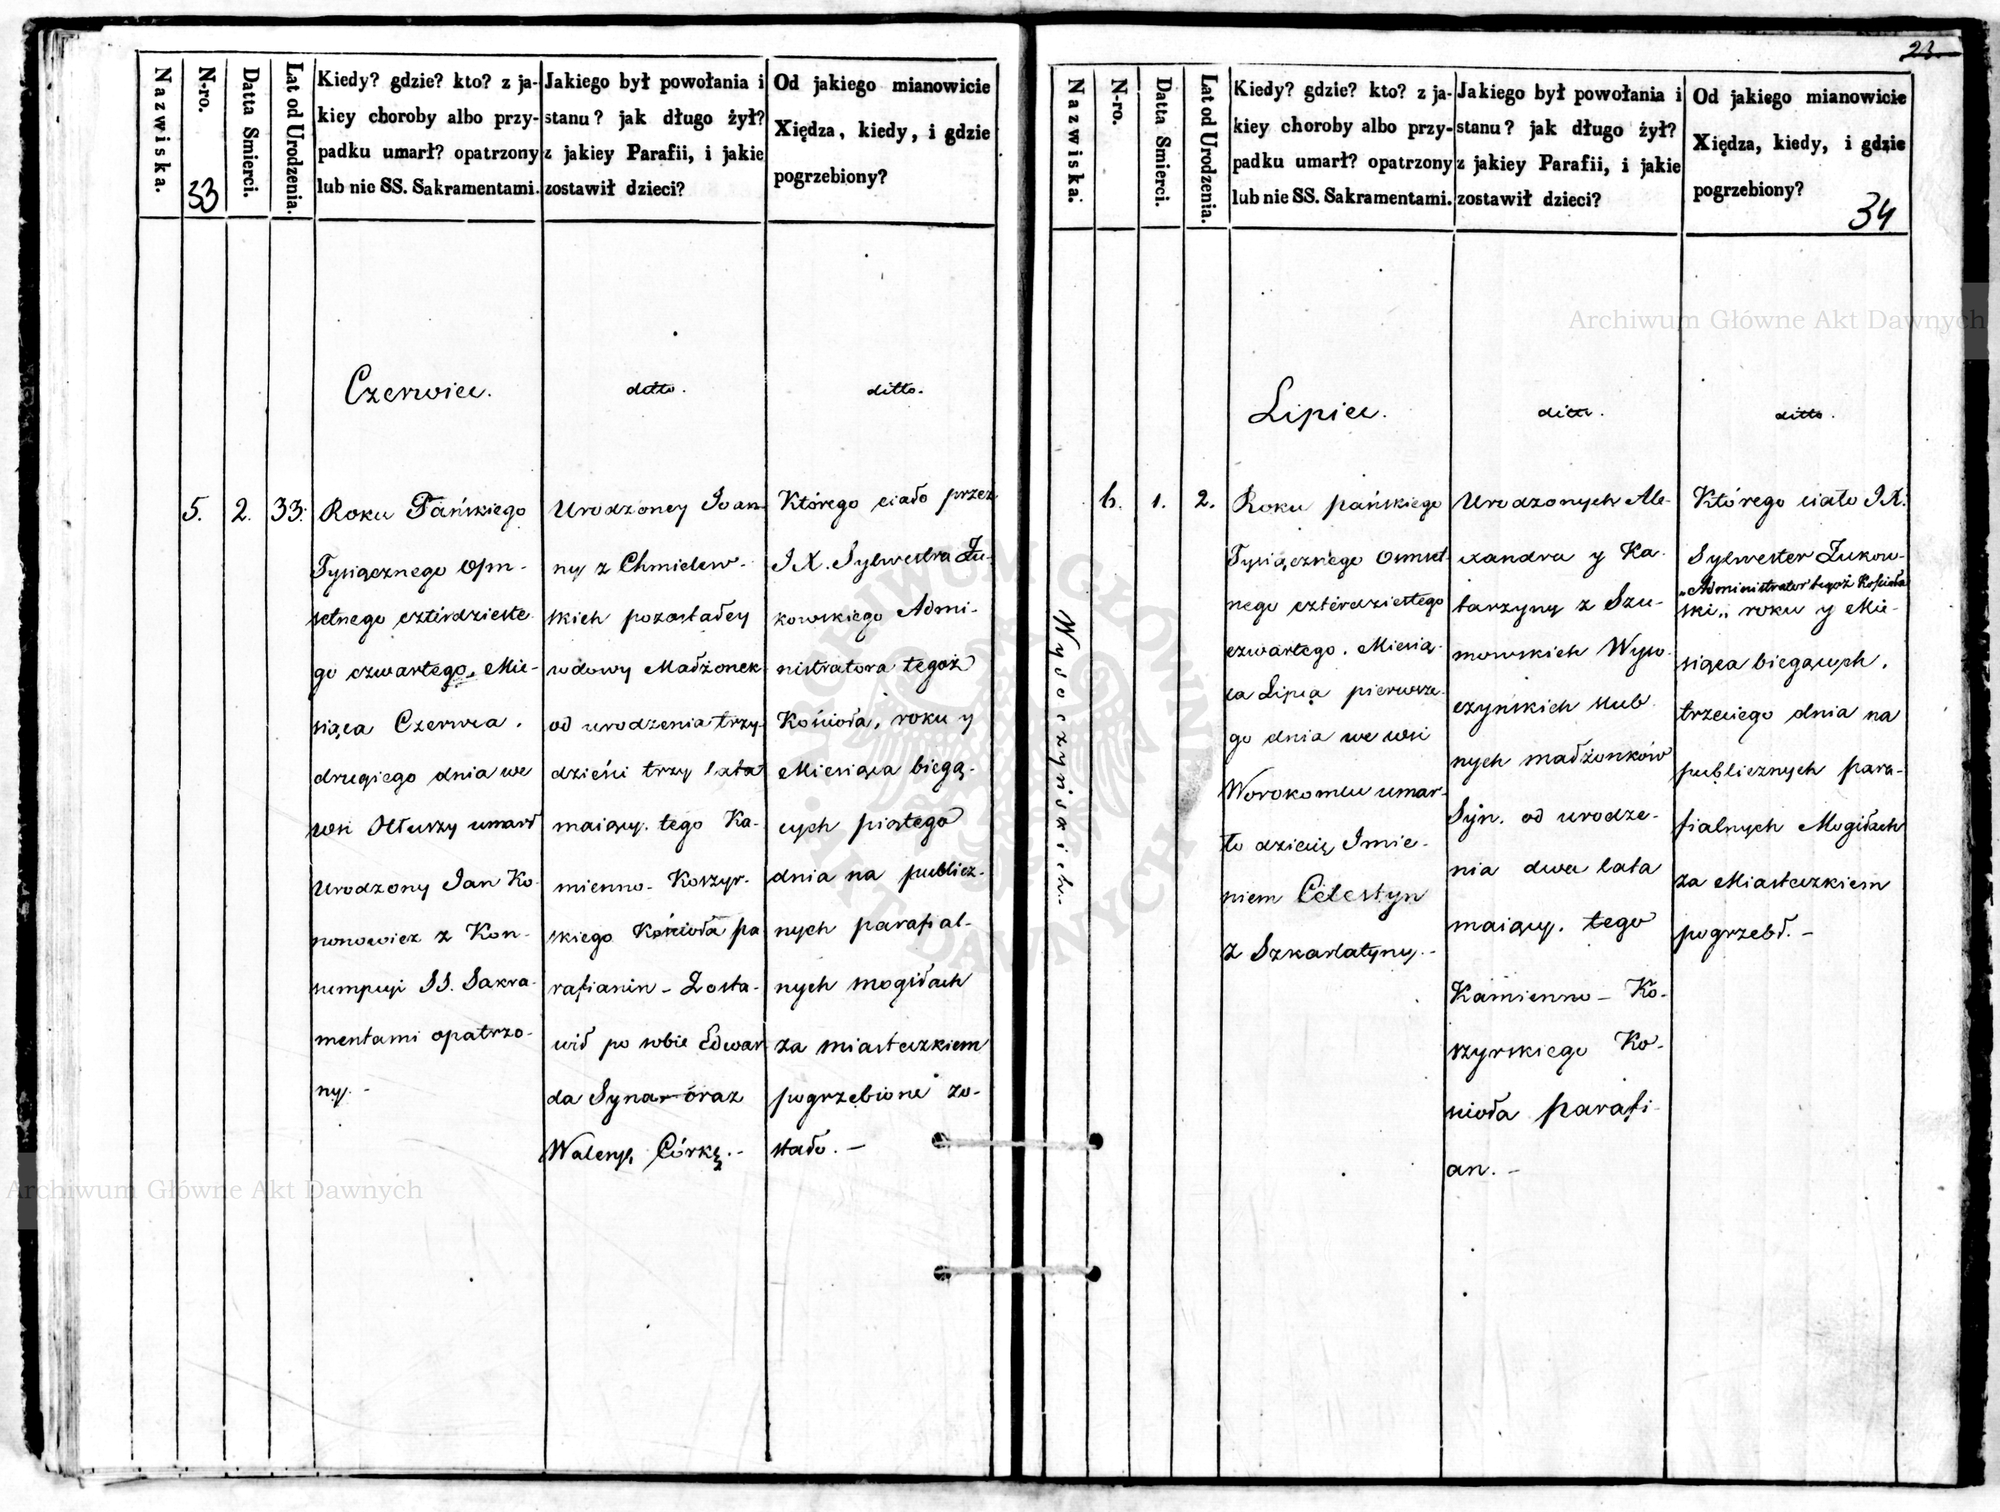 Nazwiska.
N-ro.
53
Datta Smierci.
Lat od Urodzenia.
Kiedy? gdzie? kto? z ja-
kiey choroby albo przy-
padku umarł? opatrzony
lub nie SS. Sakramentami.
Jakiego był powołania i
stanu? jak długo żył?
z jakiey Parafii, i jakie
zostawił dzieci?
Od jakiego mianowicie
Xiędza, kiedy, i gdzie
pogrzebiony?
Czerwiec.
ditto.
ditto.
5.
2.
33.
Roku Pańskiego
Tysiącznego Ośm-
setnego cztérdzieste
go czwartego, Mie-
siąca Czerwca.
drugiego dnia we
wsi umarł
Urodzony Jan Ko-
nonowicz z Kon-
sumpcyi SS. Sakra-
mentami opatrzo-
ny. -
Urodzoney Joan-
ny z Chmielew-
skich pozostałey
wdowy Małżonek
od urodzenia trzy-
dzieści trzy lata
maiący. tego Ka-
mienno - Koszyr-
skiego Kościoła pa
rafianin - Zosta-
wił po sobie Edwar
da Syna oraz
Waleryę Córkę. -
Którego ciało przez
J X. Sylwestra Żu-
kowskiego Admi-
nistratora tegoż
Kościoła, roku y
Miesiąca biegą-
cych piątego
dnia na publicz-
nych parafial-
nych mogiłach
za miasteczkiem
pogrzebione zo-
stało. -
23
Nazwiska.
N-ro.
Datta Smierci.
Lat od Urodzenia.
Kiedy? gdzie? kto? z ja-
kiey choroby albo przy-
padku umarł? opatrzony
lub nie SS. Sakramentami.
Jakiego był powołania i
stanu? jak długo żył?
z jakiey Parafii, i jakie
zostawił dzieci?
Od jakiego mianowicie
Xiędza, kiedy, i gdzie
pogrzebiony?
34
Archiwum Główne Akt Dawnych
Lipiec.
ditto.
ditto.
Wysoczyńskich.
6.
1.
2.
Roku pańskiego
Tysiącznego Ośmset
nego cztérdziestego
czwartego. Miesią-
ca Lipca pierwsze-
go dnia we wsi
Worokomlu umar-
ło dziecię Imie-
niem Celestyn
z Szkarlatyny. -
Urodzonych Ale-
xandra y Ka-
tarzyny z Szu-
mowskich Wyso-
czyńskich slub-
nych małżonków
Syn. od urodze-
nia dwa lata
maiący. tego
Kamienno - Ko-
szyrskiego Ko-
scioła parafi-
an. -
Którego ciało J X.
Sylwester Żukow-
„Administrator tegoż Kościoła
ski„ roku y Mie-
siąca biegących.
trzeciego dnia na
publicznych para-
fialnych Mogiłach
za Miasteczkiem
pogrzebł. -
Archiwum Główne Akt Dawnych
ARCHIWUM GŁÓWNE
AKT DAWNYCH